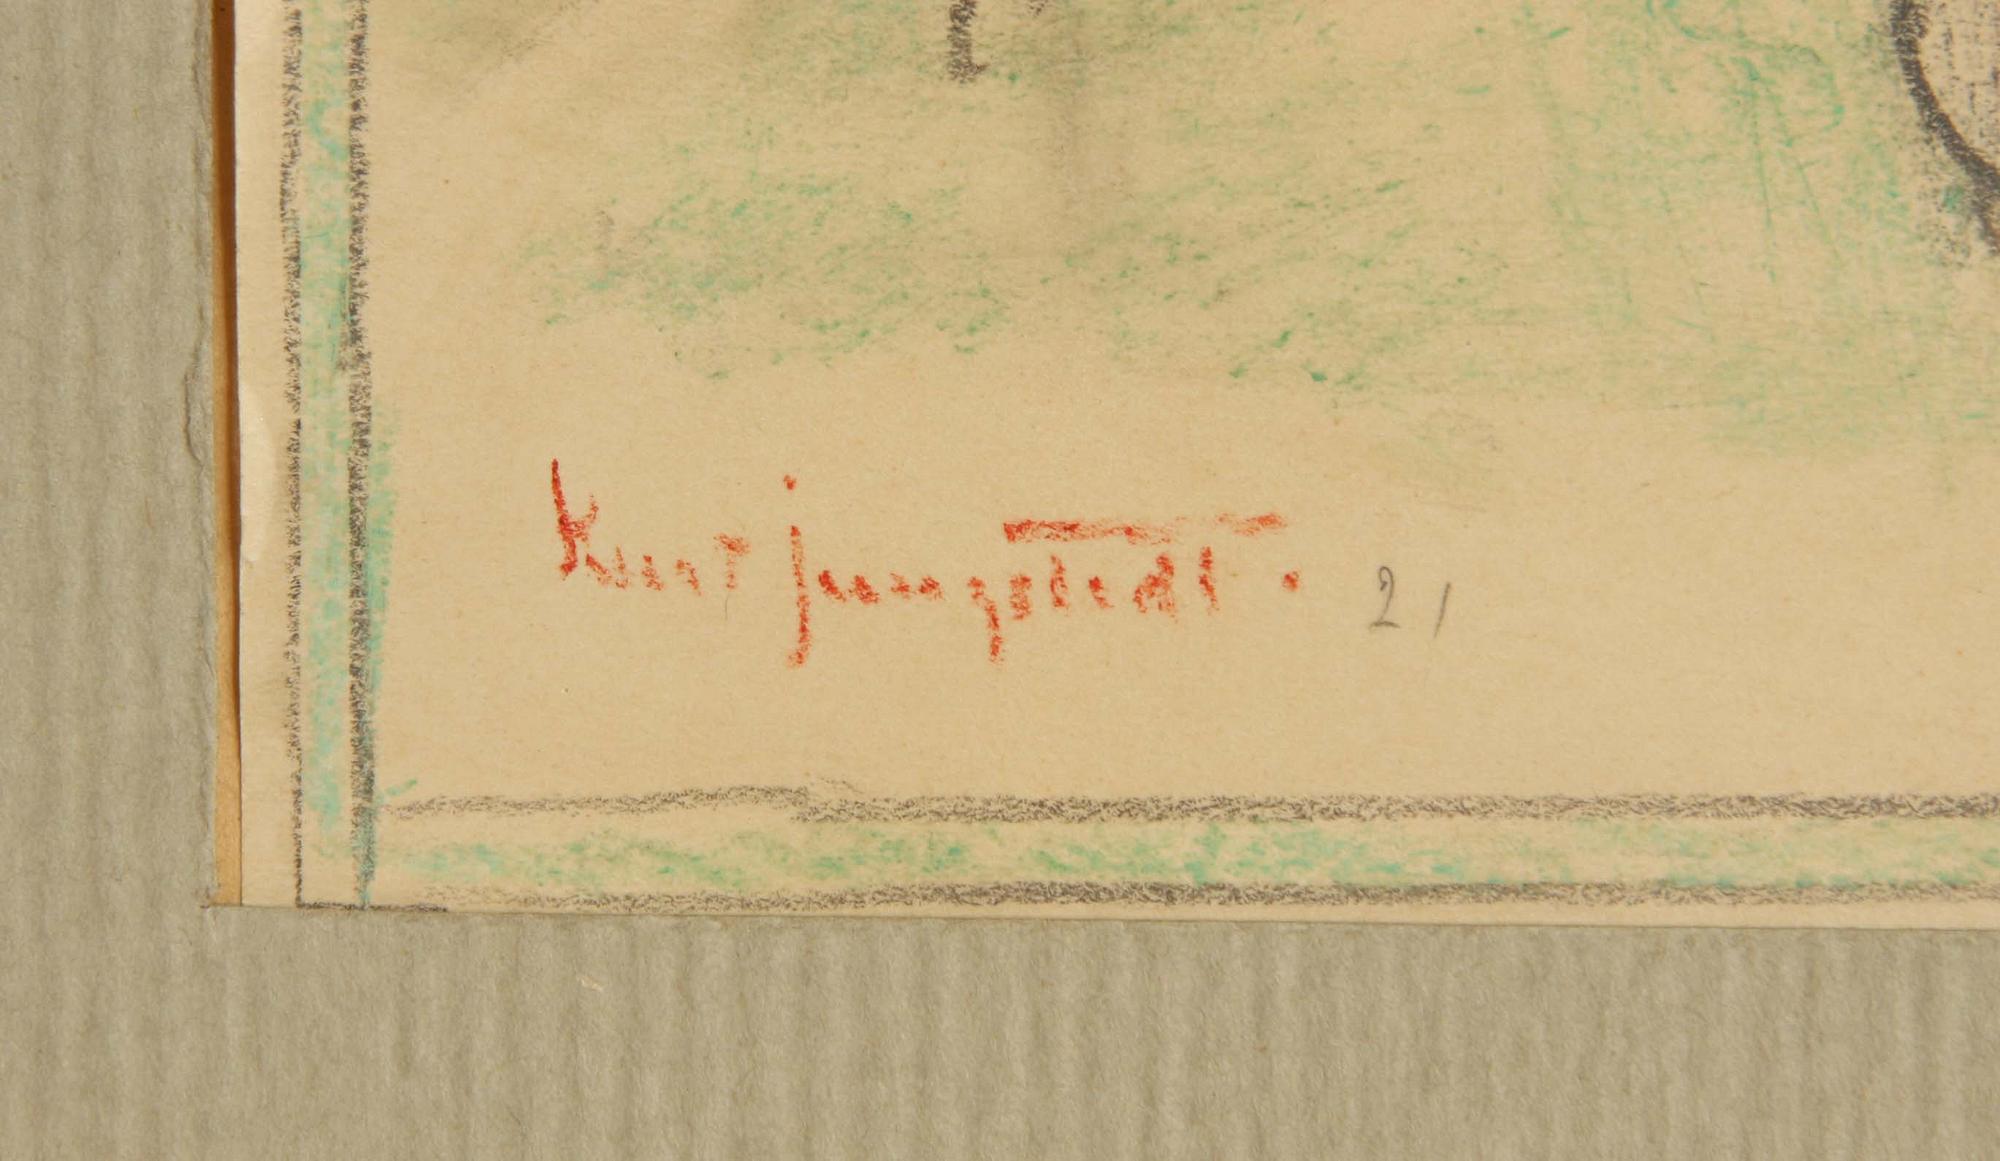 Kurt jungstedt. 21